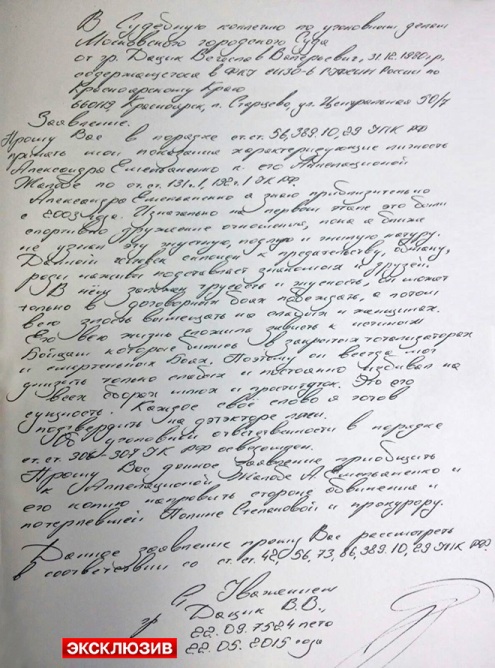 В Судебную коллегию по уголовным делам
Московского городского Суда
от гр. Дацик Вячеслав Валерьевич, 31.12.1980г.р,
содержащегося в ФКУ России по
Красноярскому Краю
660119 Красноярск, п. Старцево, ул. Центральная 50/1
Заявление.
Прошу Вас в порядке ст.ст. 56, 389.10, 29 УПК РФ
принять мои показания характеризующие личность
Александра Емельяненко к его Аппеляционой
Жалобе по ст.ст. 131ч.1, 132ч.1 УК РФ.
Александра Емельяненко я знаю приблизительно
с 2003 года. Изначально на первом этапе это были
спортивно дружеские отношения, пока я ближе
не узнал эту жуткую, подлую и гнилую натуру.
Данный склонен к предательству, обману,
ради наживы подставлает знакомых и друзей.
В нём заложен трусость и, он может
только в договорных боях побеждать, а потом
всю злость вымещать на слабых и женщинах.
Его всю жизнь зависть к истиным
Бойцам которые бились в закрытых тотализаторах
и смертельных боях. Поэтому он всегда мог
унизить только слабых и постоянно избивал на
всех сборах шлюх и проституток. Это его
сущность. Каждое своё слово я готов
подтвердить на детекторе лжи.
Об уголовной ответственности в порядке
ст.ст. 306-307 УК РФ осведомлен.
Прошу Вас данное заявление приобщить
к Аппеляционой Жалобе А. Емельяненко и
его копию направить стороне обвинения и
потерпевшей Полине Степановой и прокурору.
Данное заявление прошу Вас рассмотреть
в соответствии со ст.ст. 42, 56, 73, 86, 389.10, 29 УПК РФ.
С Уважением
гр Дацик В.В.,
22.09.7524 лето
22.05.2015 года
ЭКСКЛЮЗИВ